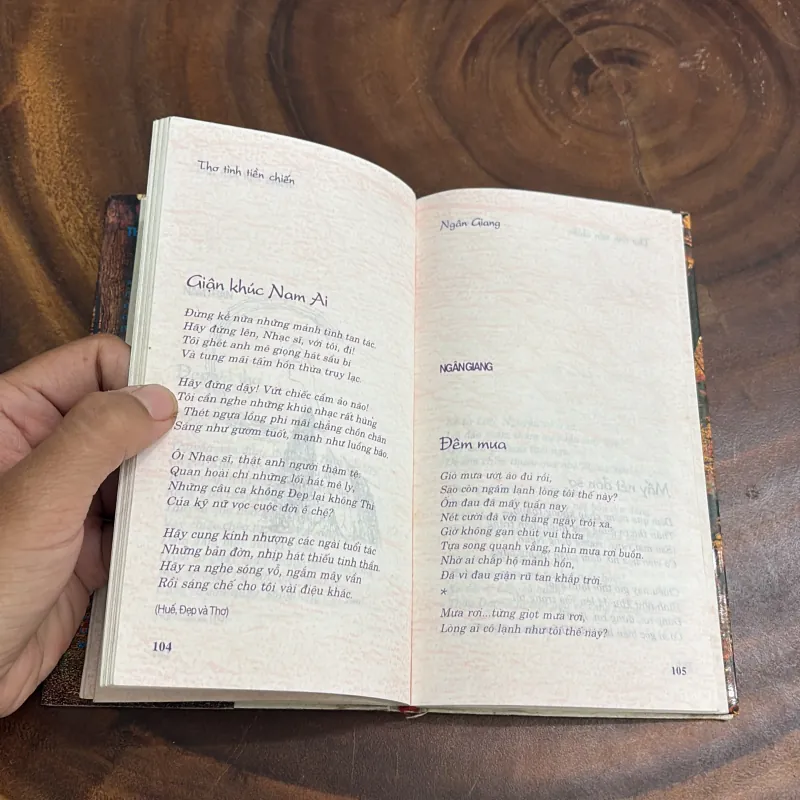 Thơ tình tiền chiến
Giận khúc Nam Ai
Đừng kể nữa những mảnh tình tan tác.
Hãy đứng lên, Nhạc sĩ, với tôi, đi!
Tôi ghét anh mê giọng hát sầu bi
Và tung mãi tấm hồn thừa trụy lạc.
Hãy đứng dậy! Vứt chiếc cầm ảo não!
Tôi cần nghe những khúc nhạc rất hùng
Thét ngựa lồng phi mãi chẳng chồn chân
Sáng như gươm tuốt, mạnh như luồng bão.
Ôi Nhạc sĩ, thật anh người thảm tệ:
Quan hoài chi những lối hát mê ly,
Những câu ca không Đẹp lại không Thi
Của kỹ nữ vọc cuộc đời ô chế?
Hãy cung kính nhượng các ngài tuổi tác
Những bản đờn, nhịp hát thiếu tinh thần.
Hãy ra nghe sóng vỗ, ngắm mây vần
Rồi sáng chế cho tôi vài điệu khác.
(Huế, Đẹp và Thơ)
104
Ngân Giang
NGÂN GIANG
Đêm mưa
Gió mưa ướt áo đủ rồi,
Sao còn ngấm lạnh lòng tôi thế này?
Ốm đau đã mấy tuần nay
Nét cười đã với tháng ngày trôi xa.
Giờ không gan chút vui thừa
Tựa song quạnh vắng, nhìn mưa rơi buồn.
Nhờ ai chắp hộ mảnh hồn,
Đã vì đau giận rũ tan khắp trời.
*
Mưa rơi...từng giọt mưa rơi,
Lòng ai có lạnh như tôi thế này?
105